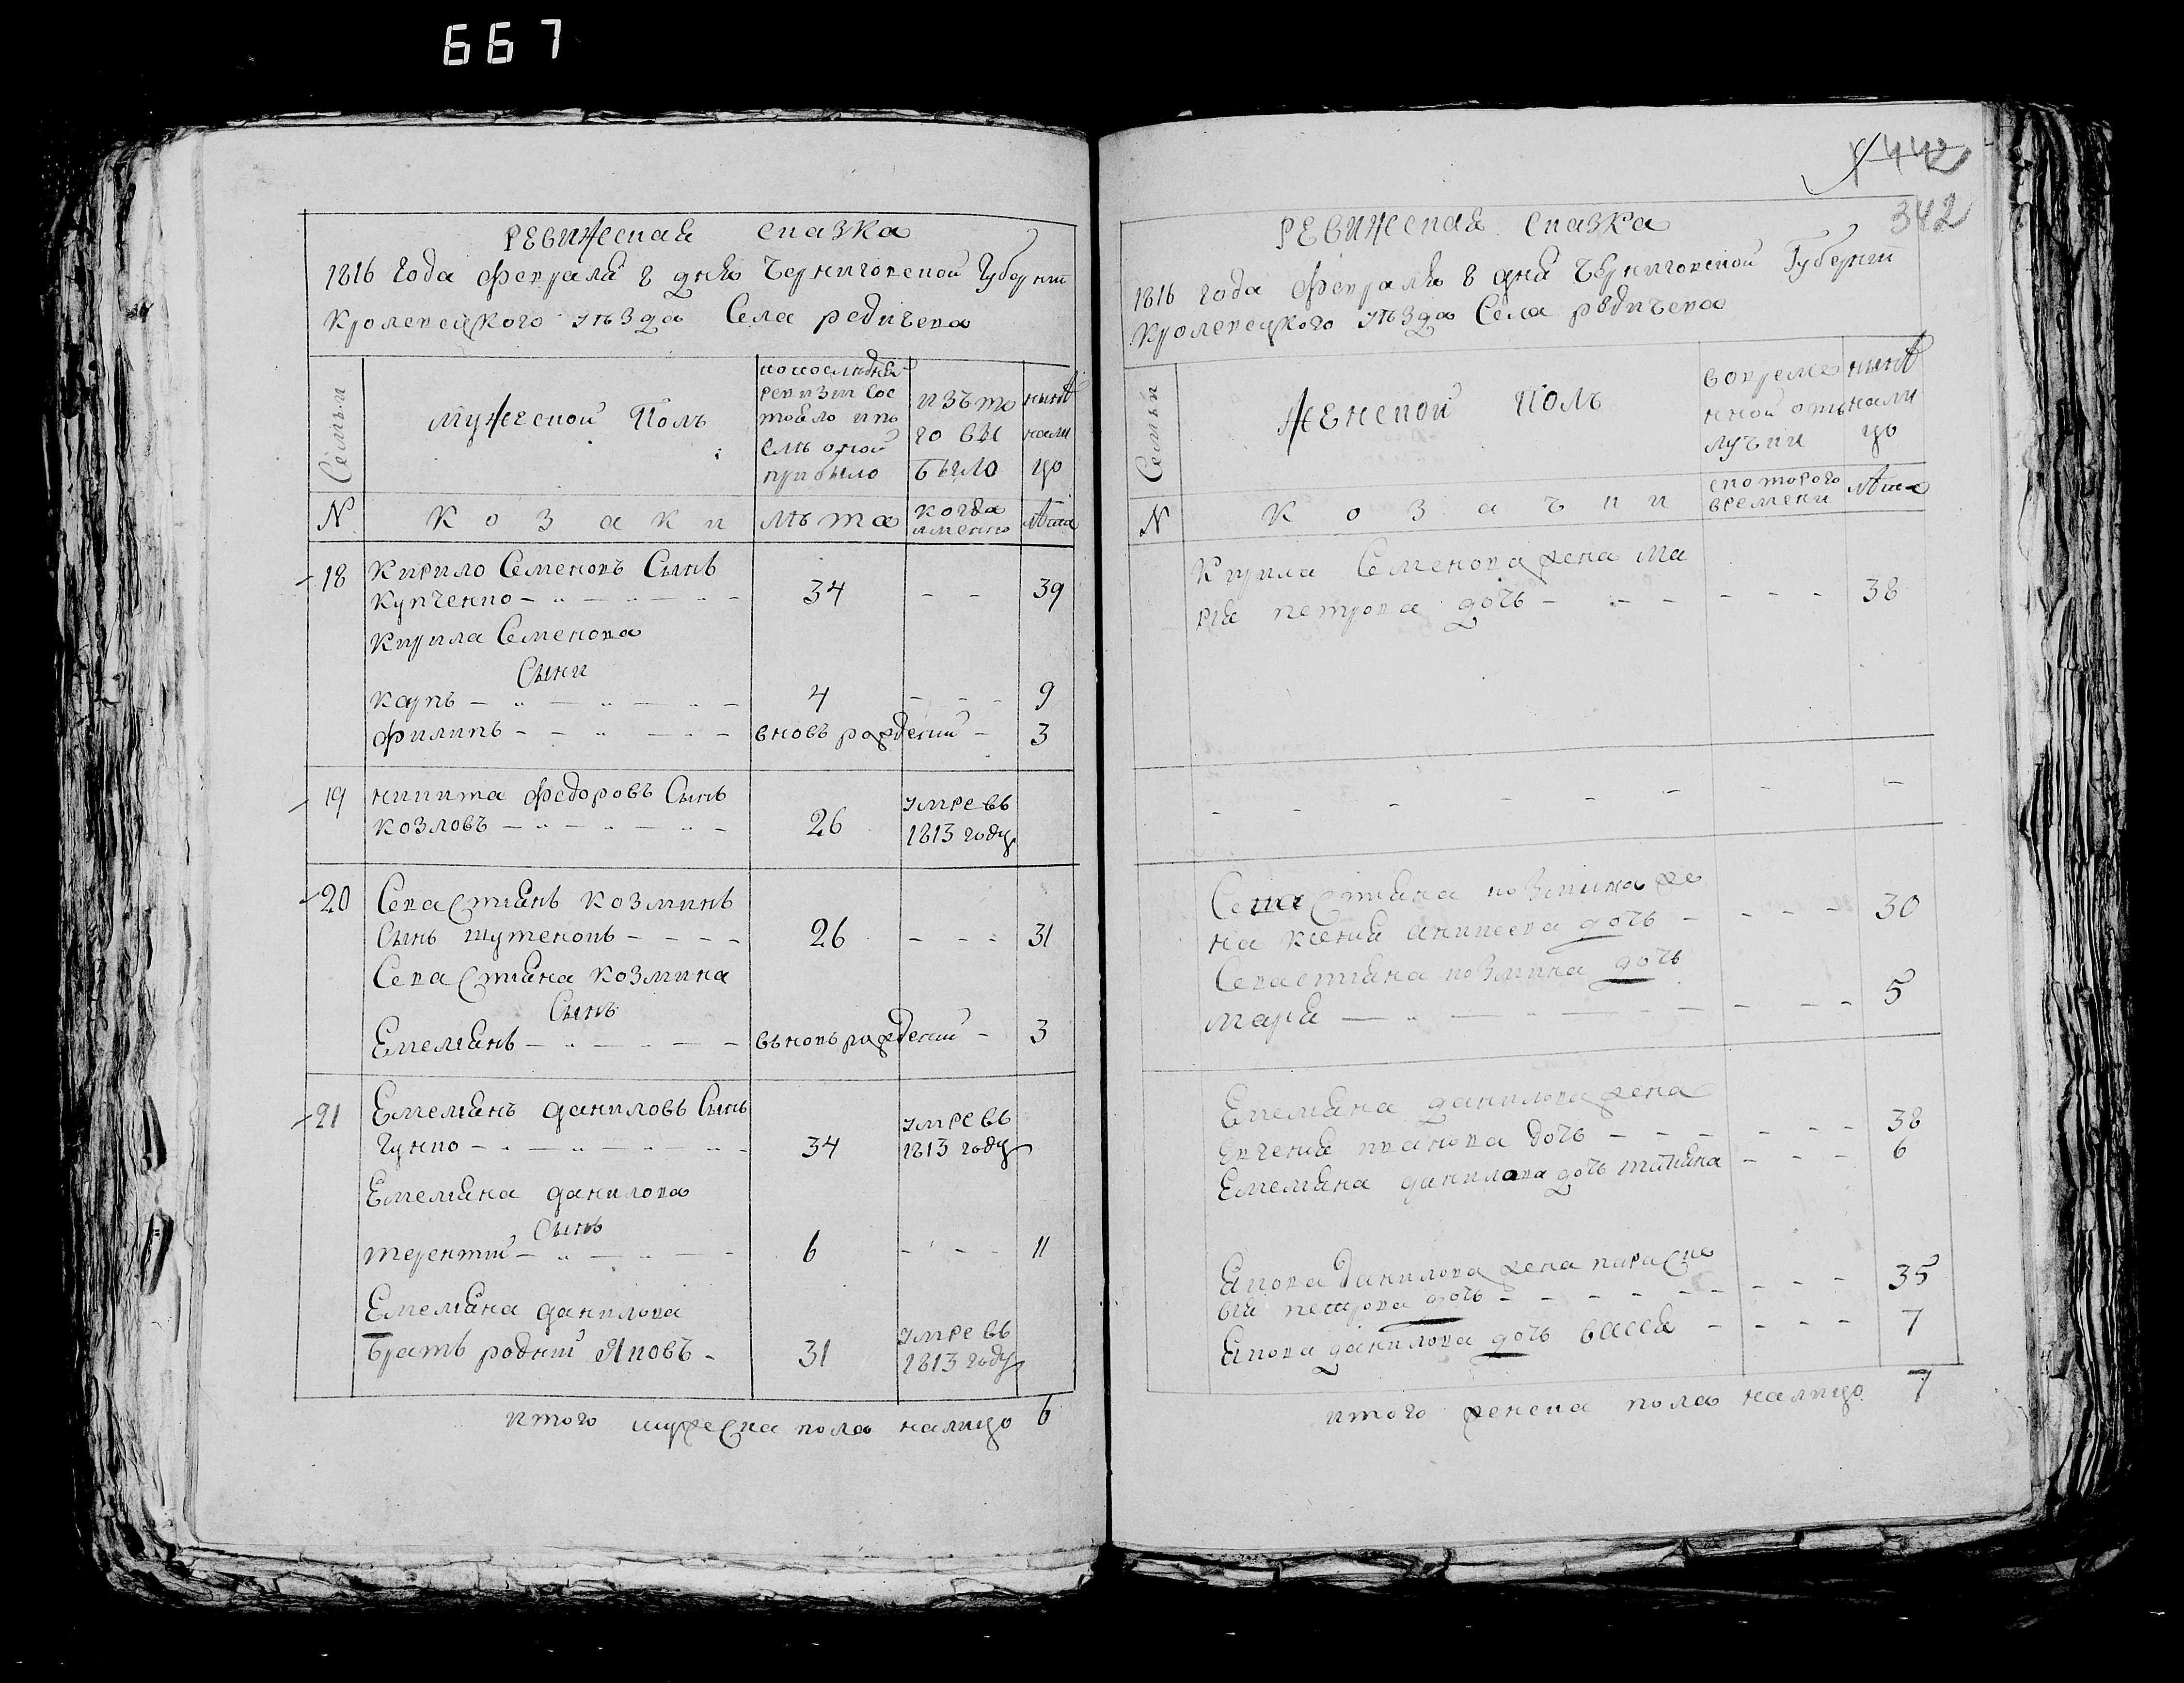 667
442
342
Ревижеская сказка
1816 года февраля 8 дня Черниговской Губернии
Кролевецкого уезда Села редичева
Семьи
Мужеской Полъ
попоследней
ревизии сос
тояло и по
сле оной
прибыло
изъ то
го вы
было
ныне
нали
цо
N
К о з а к и
лѣта
когда
имянно
лѣта
18
Кирило Семеновъ Сынъ
Купченко
34
39
Кирила Семенова
Сыни
Карпъ
4
9
Филипъ
вновь рождений
3
19
никита федоровъ Сынъ
козловъ
26
умре въ
1813 году
20
Севастиянъ козминъ
Сынъ шутековъ
26
31
Севастияна козмина
Сынъ
Емелиянъ
вьновь рожденний
3
21
Емелиянъ даниловъ Сынъ
гунко
34
умре въ
1813 году
Емелияна данилова
Сынъ
терентий
6
11
Емелияна данилова
Братъ родний Яковъ
31
умре въ
1813 году
итого мужеска пола налицо 6
Ревижеская сказка
1816 года февраля 8 дня Черниговской Губернии
Кролевецкого уезда Села редичева
Семьи
Женской Полъ
вовреме
нной отъ
лучки
ныне
нали
цо
N
К о з а ч к и
скоторого
времени
лѣта
Кирила Семенова жена Ма
рия петрова дочь
38
Севастияна козмина же
на ксения аникеева дочь
30
Севастияна козмина дочь
Мария
5
Емелияна данилова жена
Евгения иванова дочь
38
Емелияна данилова дочь татияна
6
Якова данилова жена параске
вия петрова дочь
35
Якова данилова дочь васса
7
итого женска пола налицо 7